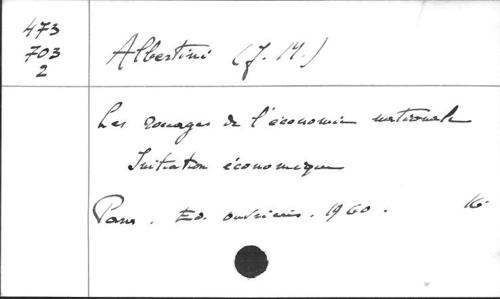 473
703
2
Albertini (J. M.)
Les rouages de l'économie nationale
Initiation économique
Paris. Ed. ouvrières. 1960. 16°